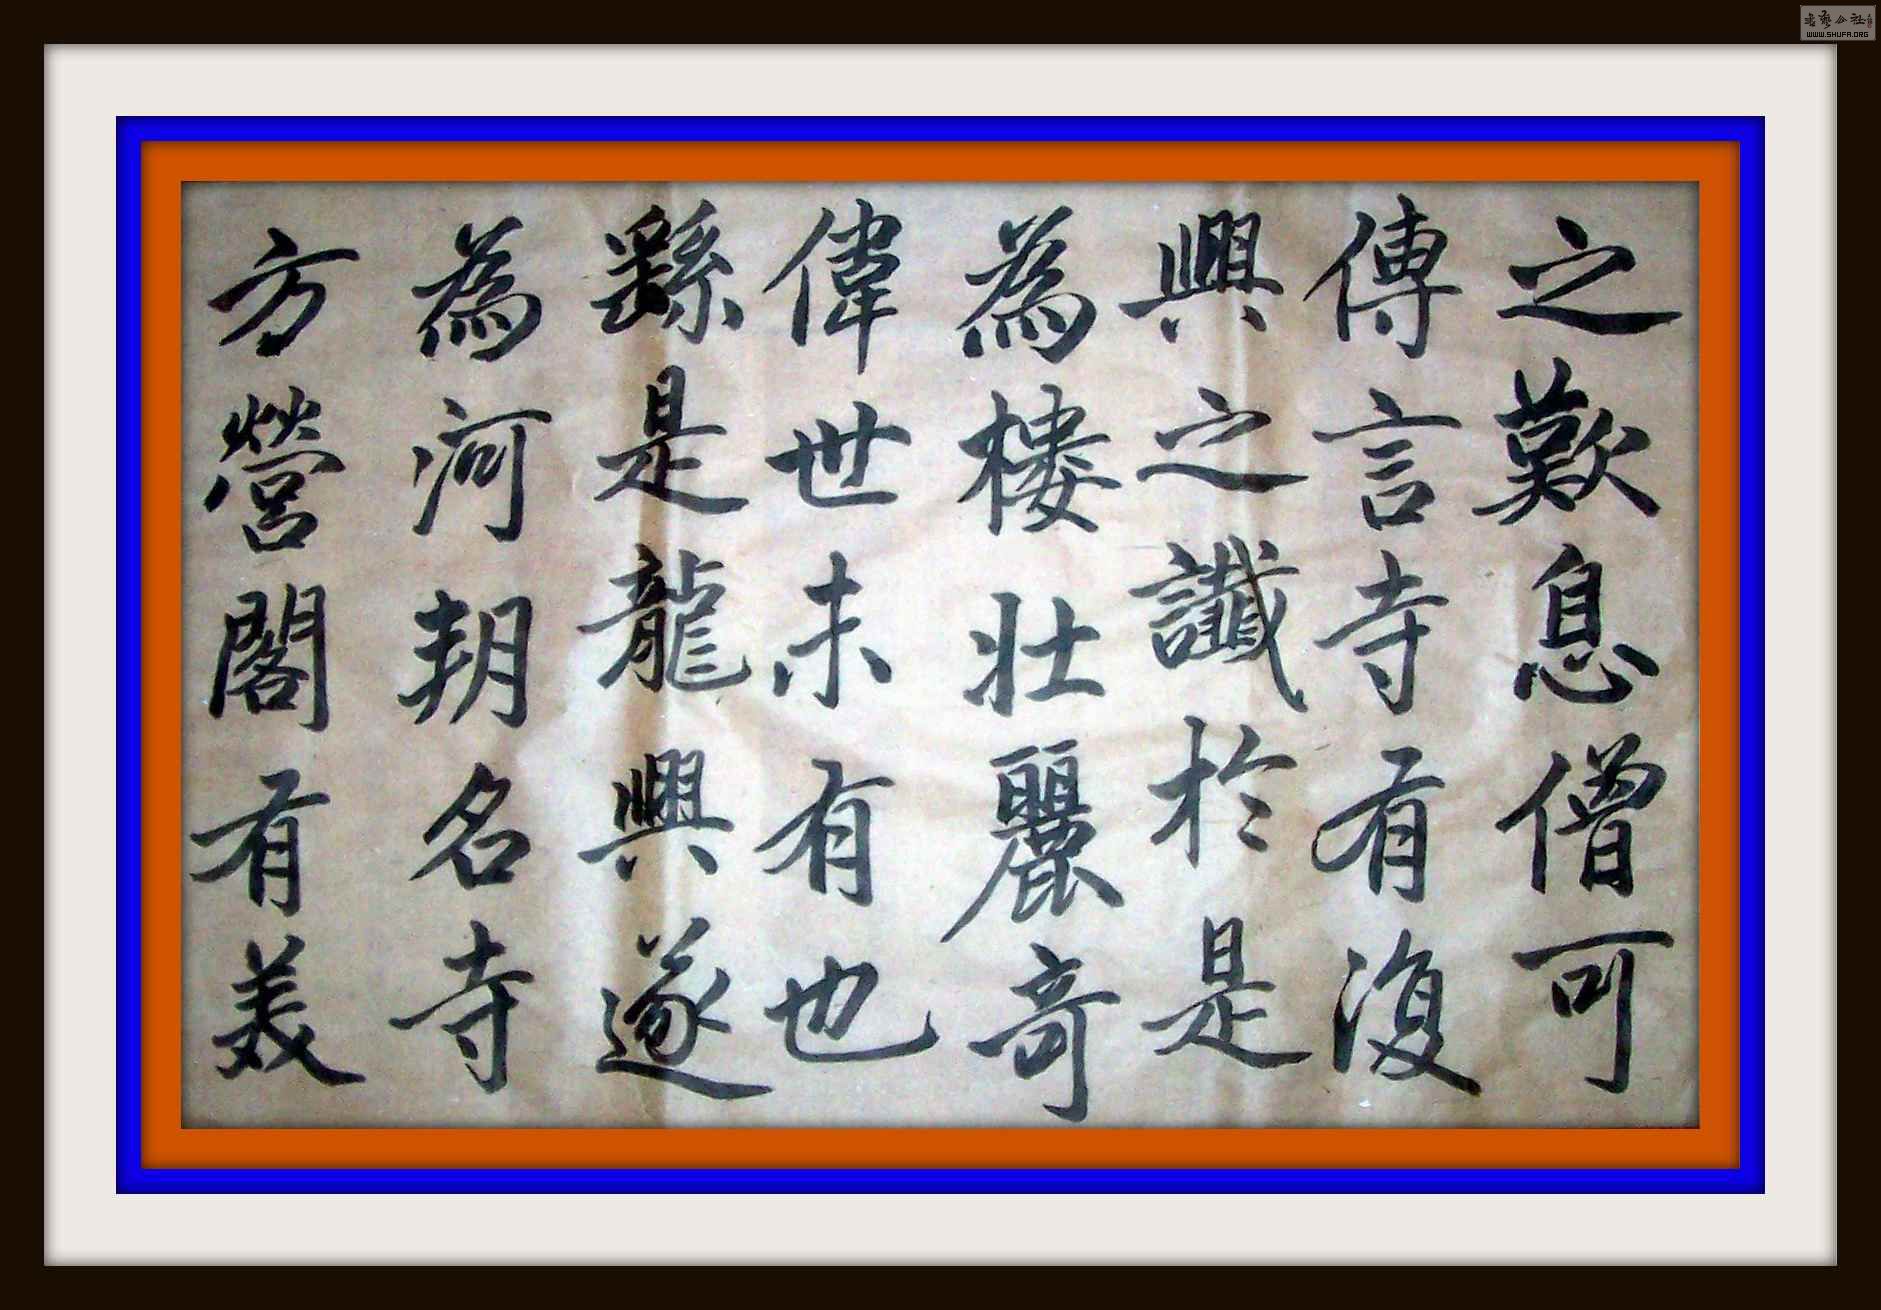 之歎息僧可
傳言寺有復
興之讖於是
為樓壯麗奇
偉世未有也
繇是龍興遂
為河朔名寺
方營閣有美
WWW.SHUFA.ORG